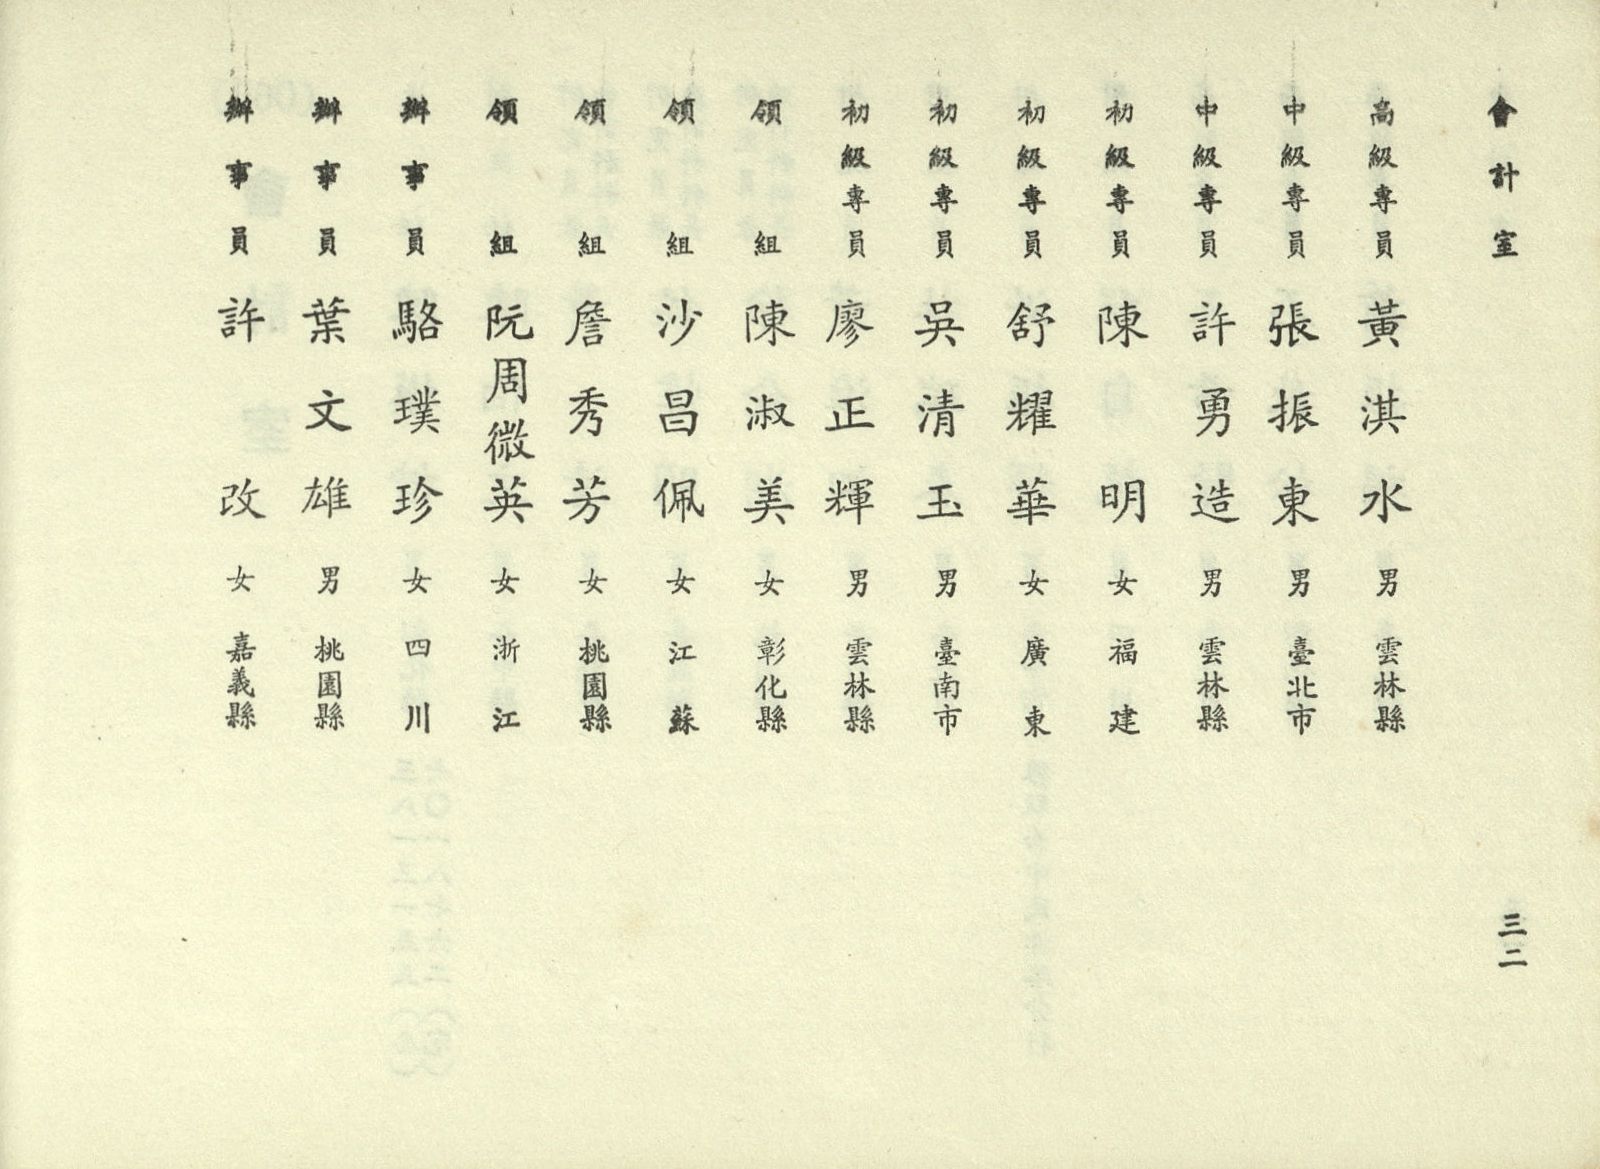 會計室
高級專員 黃淇水 男 雲林縣
中級專員 張振東 男 臺北市
中級專員 許勇造 男 雲林縣
初級專員 陳明 女 福建
初級專員 舒耀華 女 廣東
初級專員 吳清玉 男 臺南市
初級專員 廖正輝 男 雲林縣
領組 陳淑美 女 彰化縣
領組 沙昌佩 女 江蘇
領組 詹秀芳 女 桃園縣
領組 阮周微英 女 浙江
辦事員 駱璞珍 女 四川
辦事員 葉文雄 男 桃園縣
辦事員 許改 女 嘉義縣
三二